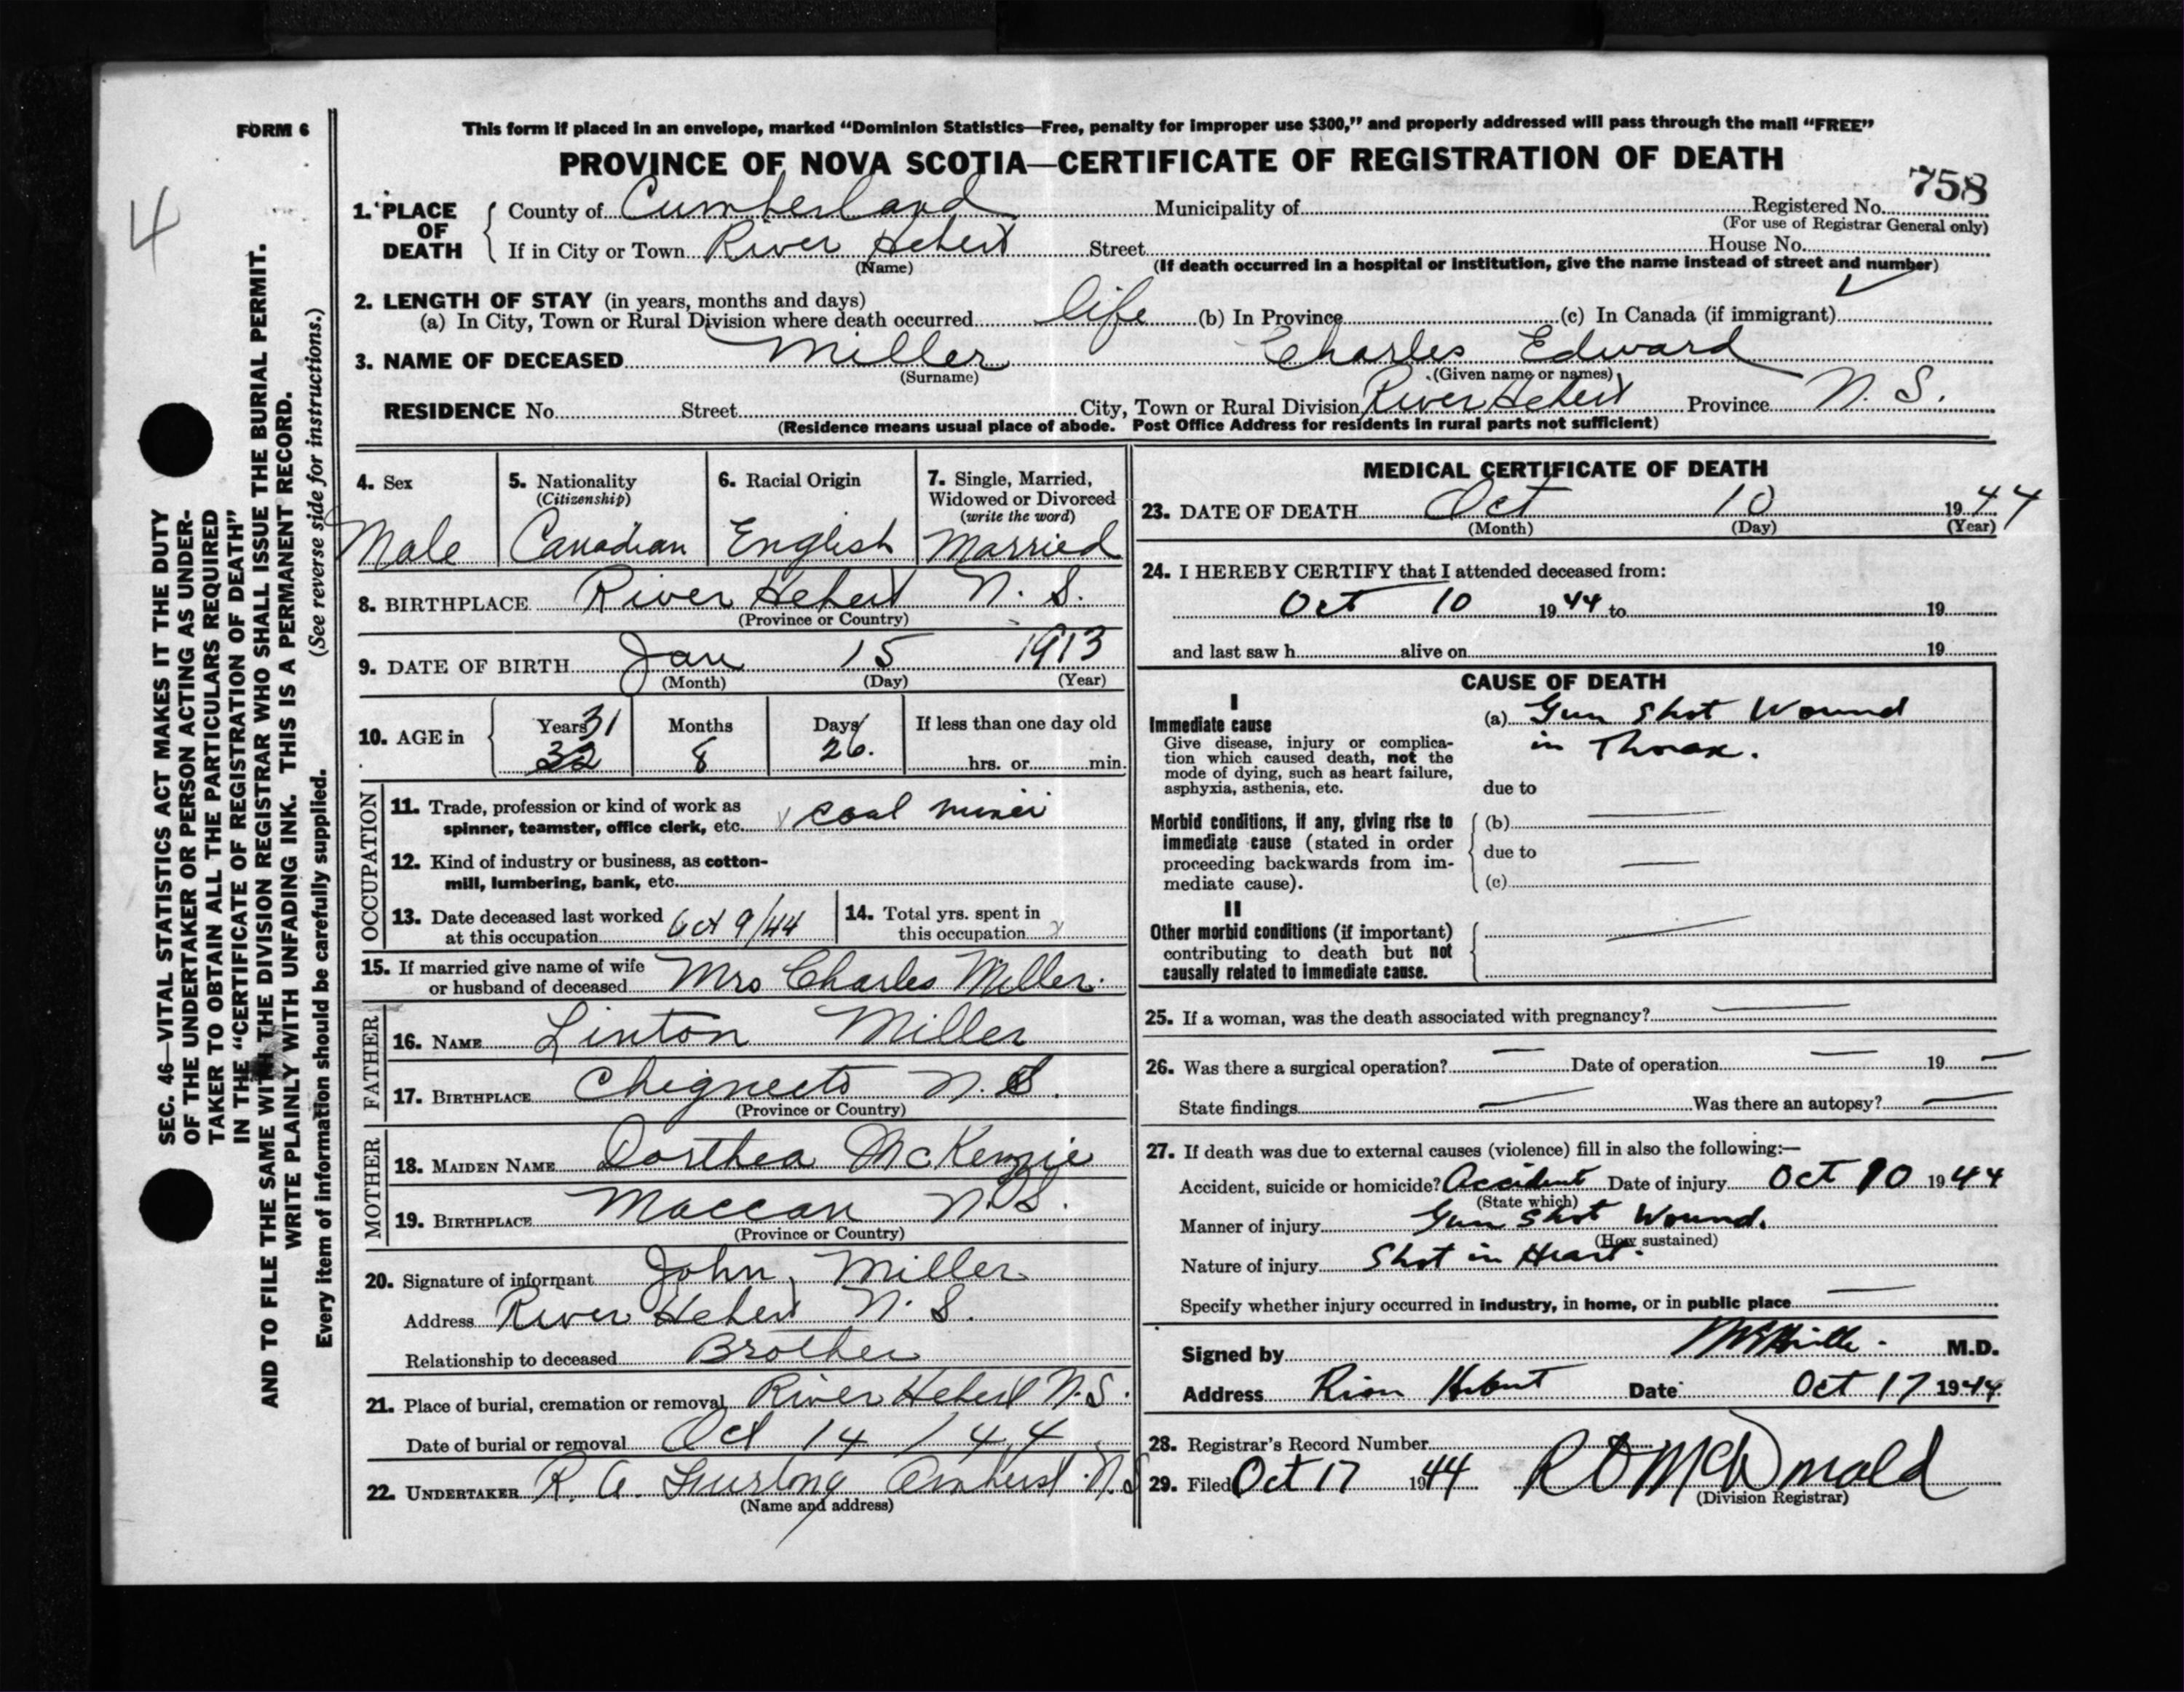 FORM 6
4
This form if placed in an envelope, marked “Dominion Statistics—Free, penalty for improper use $300,” and properly addressed will pass through the mail “FREE”
PROVINCE OF NOVA SCOTIA—CERTIFICATE OF REGISTRATION OF DEATH
758
1. PLACE OF DEATH
County of Cumberland Municipality of Registered No.
(For use of Registrar General only)
If in City or Town River Hebert Street House No.
(Name) (If death occurred in a hospital or institution, give the name instead of street and number)
2. LENGTH OF STAY (in years, months and days)
(a) In City, Town or Rural Division where death occurred life (b) In Province (c) In Canada (if immigrant)
3. NAME OF DECEASED Miller Charles Edward
(Surname) (Given name or names)
RESIDENCE No. Street City, Town or Rural Division River Hebert Province N. S.
(Residence means usual place of abode. Post Office Address for residents in rural parts not sufficient)
SEC. 46—VITAL STATISTICS ACT MAKES IT THE DUTY
OF THE UNDERTAKER OR PERSON ACTING AS UNDER-
TAKER TO OBTAIN ALL THE PARTICULARS REQUIRED
IN THE “CERTIFICATE OF REGISTRATION OF DEATH”
AND TO FILE THE SAME WITH THE DIVISION REGISTRAR WHO SHALL ISSUE THE BURIAL PERMIT.
WRITE PLAINLY WITH UNFADING INK. THIS IS A PERMANENT RECORD.
Every item of information should be carefully supplied. (See reverse side for instructions.)
4. Sex
Male
5. Nationality
(Citizenship)
Canadian
6. Racial Origin
English
7. Single, Married,
Widowed or Divorced
(write the word)
Married
8. BIRTHPLACE River Hebert N. S.
(Province or Country)
9. DATE OF BIRTH Jan 15 1913
(Month) (Day) (Year)
10. AGE in
Years 31
32
Months
8
Days
26.
If less than one day old
hrs. or min.
OCCUPATION
11. Trade, profession or kind of work as
spinner, teamster, office clerk, etc. coal miner
12. Kind of industry or business, as cotton-
mill, lumbering, bank, etc.
13. Date deceased last worked
at this occupation Oct 9/44
14. Total yrs. spent in
this occupation x
15. If married give name of wife
or husband of deceased Mrs Charles Miller
FATHER
16. NAME Linton Miller
17. BIRTHPLACE Chignecto N. S.
(Province or Country)
MOTHER
18. MAIDEN NAME Dorthea McKenzie
19. BIRTHPLACE Maccan N. S.
(Province or Country)
20. Signature of informant John Miller
Address River Hebert N. S.
Relationship to deceased Brother
21. Place of burial, cremation or removal River Hebert N. S.
Date of burial or removal Oct 14 / 44
22. UNDERTAKER R. A. Furlong Amherst N. S
(Name and address)
MEDICAL CERTIFICATE OF DEATH
23. DATE OF DEATH Oct 10 1944
(Month) (Day) (Year)
24. I HEREBY CERTIFY that I attended deceased from:
Oct 10 1944 to 19
and last saw h alive on 19
CAUSE OF DEATH
I
Immediate cause
Give disease, injury or complica-
tion which caused death, not the
mode of dying, such as heart failure,
asphyxia, asthenia, etc.
(a) Gun Shot Wound
in Thorax.
due to
Morbid conditions, if any, giving rise to
immediate cause (stated in order
proceeding backwards from im-
mediate cause).
(b)
due to
(c)
II
Other morbid conditions (if important)
contributing to death but not
causally related to immediate cause.
25. If a woman, was the death associated with pregnancy? —
26. Was there a surgical operation? — Date of operation — 19 —
State findings — Was there an autopsy? —
27. If death was due to external causes (violence) fill in also the following:—
Accident, suicide or homicide? Accident Date of injury Oct 10 1944
(State which)
Manner of injury Gun Shot Wound.
(How sustained)
Nature of injury Shot in Heart.
Specify whether injury occurred in industry, in home, or in public place —
Signed by M.D.
Address River Hebert Date Oct 17 1944
28. Registrar's Record Number
29. Filed Oct 17 1944 R D McDonald
(Division Registrar)